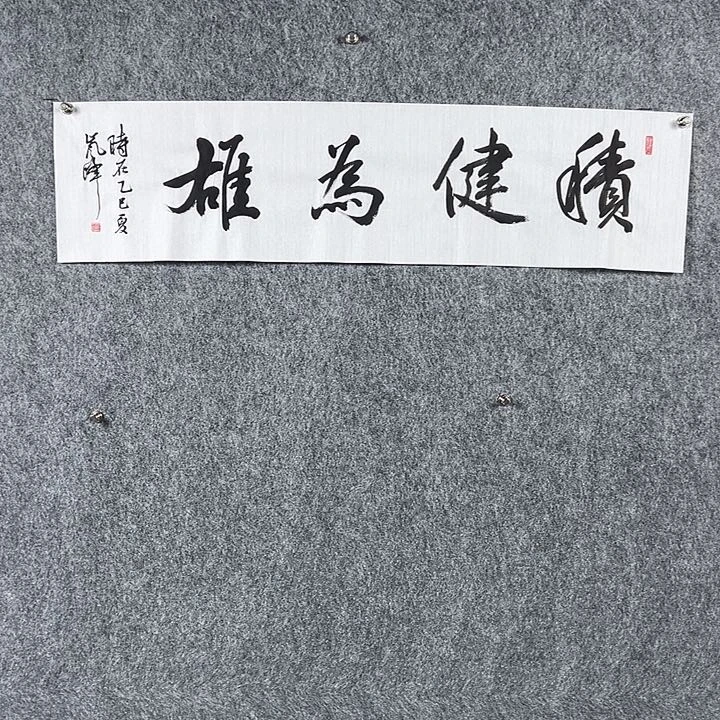 積健為雄
時在乙巳夏